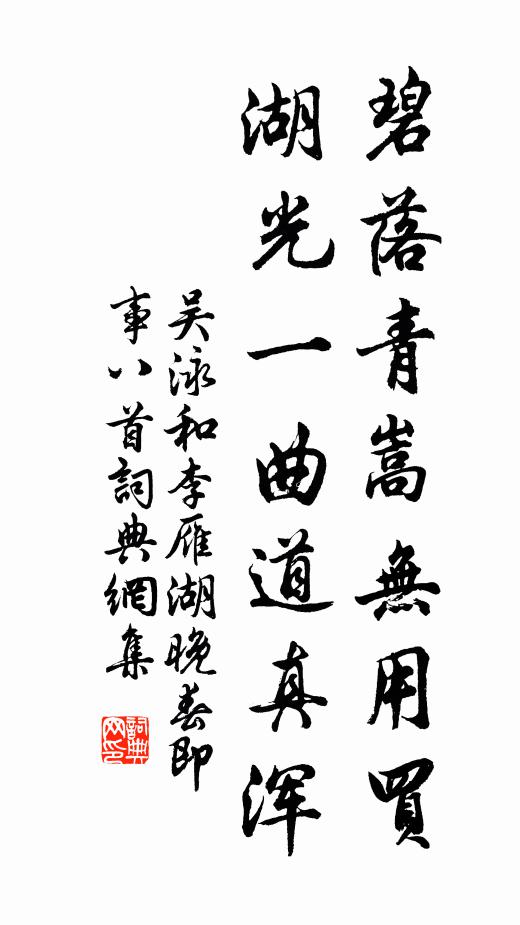 碧落青嵩無用買
湖光一曲道真渾
吴泳和李雁湖晚春即
事八首詞典網集
詞典
网印